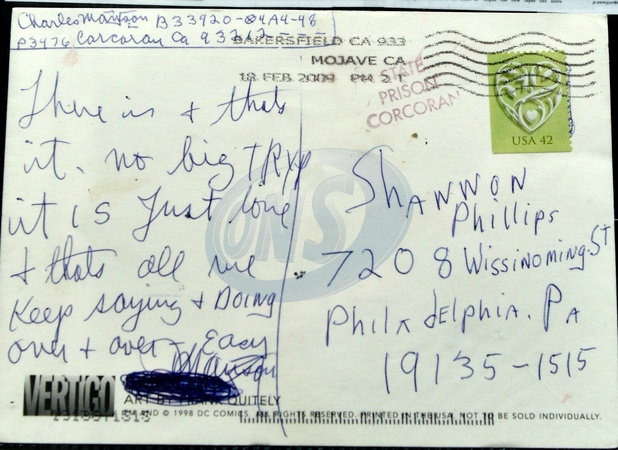 Charles Manson B33920-04A4-48
P3476 Corcoran Ca 93212
BAKERSFIELD CA 933
MOJAVE CA
18 FEB 2009 PM 2 T
STATE
PRISON
CORCORAN
USA 42
There is + thats
it. no big TRyp
it is Just love
+ thats all we
Keep saying + Doing
over + over - Easy
Manson
SHANNON
Phillips
7208 Wissinoming St
Philadelphia. Pa
19135-1515
ONS
VERTIGO
ART BY FRANK QUITELY
TM AND © 1998 DC COMICS. ALL RIGHTS RESERVED. PRINTED IN THE USA. NOT TO BE SOLD INDIVIDUALLY.